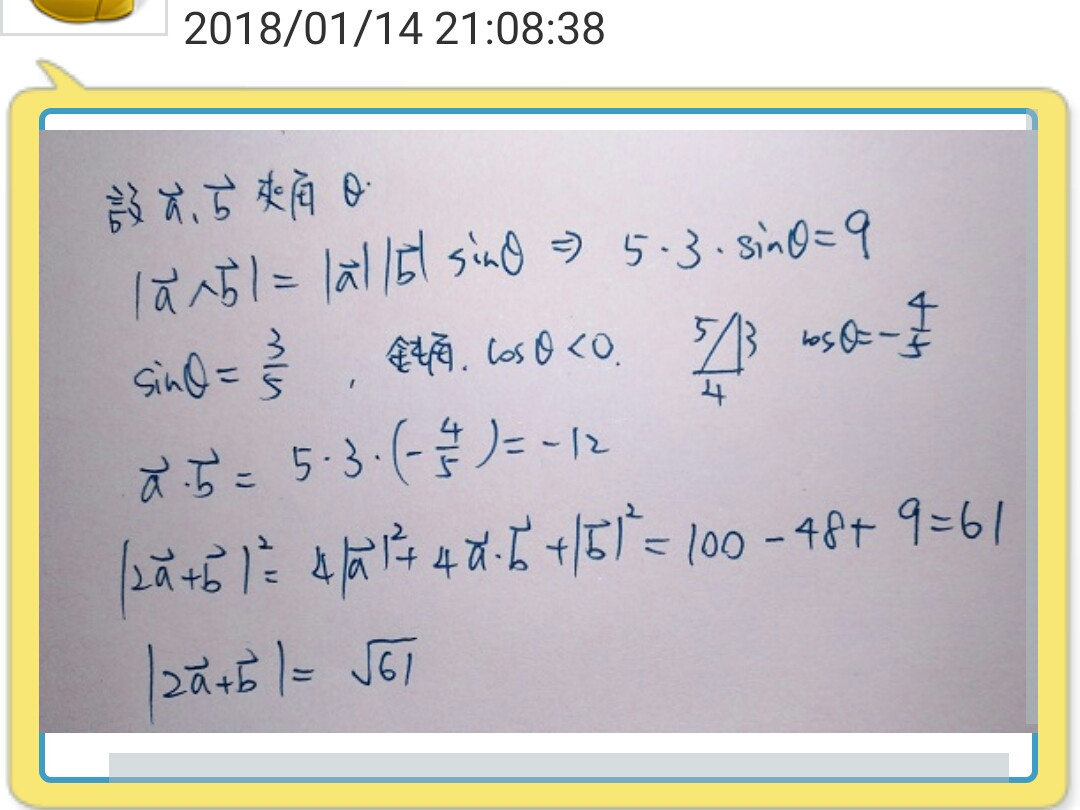 2018/01/14 21:08:38
設 a⃗、b⃗ 夾角 θ
|a⃗∧b⃗| = |a⃗||b⃗| sinθ ⇒ 5·3·sinθ=9
sinθ = 3/5 , 鈍角. cosθ<0. 5 3 4 cosθ=-4/5
a⃗·b⃗ = 5·3·(-4/5)=-12
|2a⃗+b⃗|²= 4|a⃗|²+4a⃗·b⃗+|b⃗|²=100-48+9=61
|2a⃗+b⃗|= √61